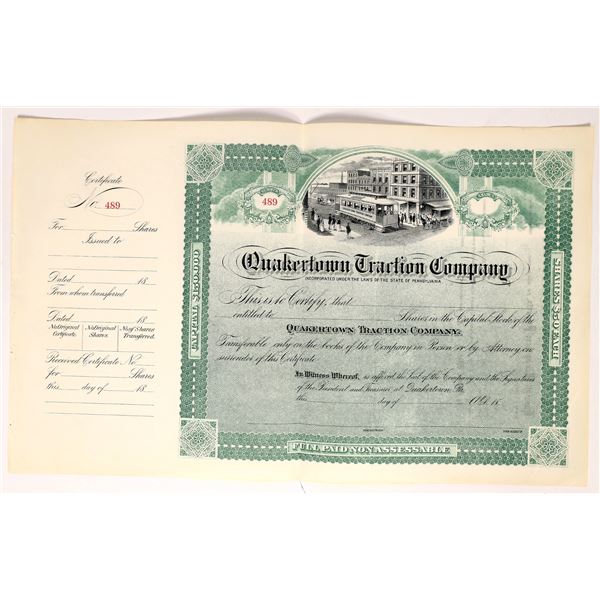 Certificate
No. 489
For Shares
Issued to
Dated 18
From whom transferred
Dated 18
No Original Certificate. No Original Shares. No. of Shares Transferred.
Received Certificate No.
for Shares
this day of 18
489
Quakertown Traction Company
INCORPORATED UNDER THE LAWS OF THE STATE OF PENNSYLVANIA
This is to Certify, that
entitled to Shares in the Capital Stock of the
QUAKERTOWN TRACTION COMPANY.
Transferable only on the books of the Company in Person or by Attorney on
surrender of this Certificate.
In Witness Whereof, is affixed the Seal of the Company and the Signatures
of the President and Treasurer at Quakertown, Pa.
this day of A.D. 18
CAPITAL $150,000
SHARES $50 EACH
FULL PAID NON ASSESSABLE